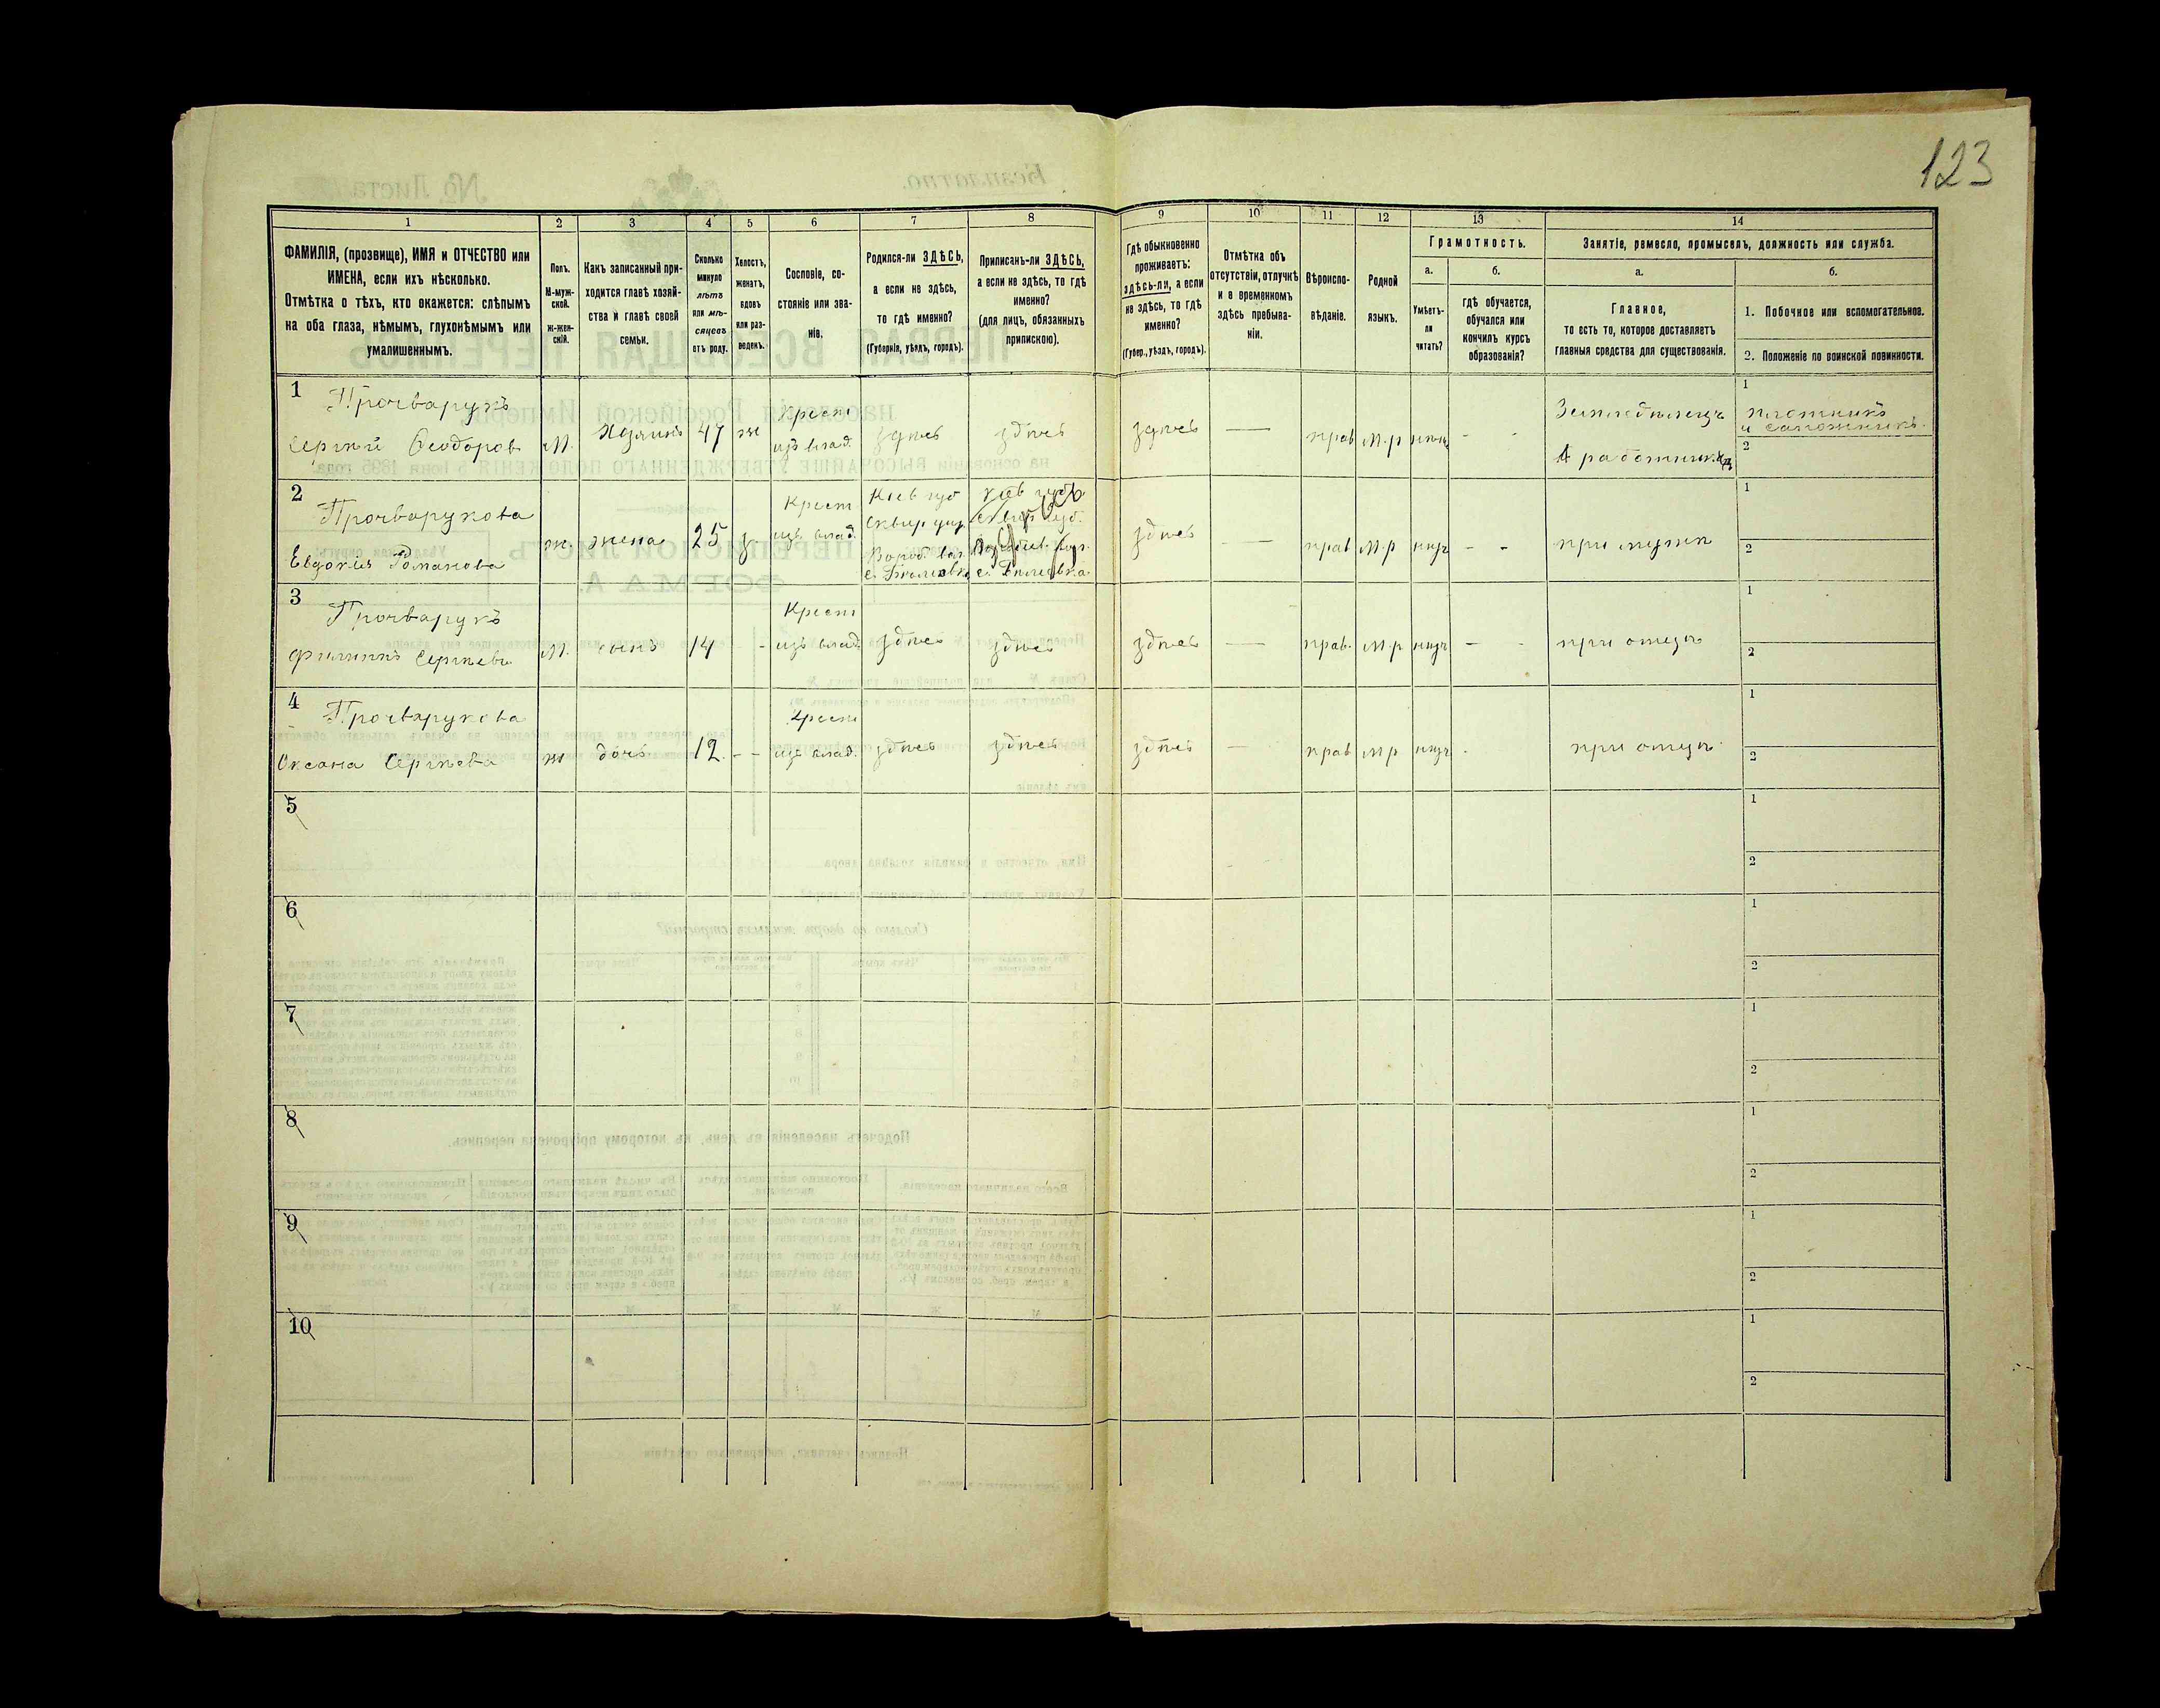 123
1
2
3
4
5
6
7
8
9
10
11
12
13
14
ФАМИЛІЯ, (прозвище), ИМЯ и ОТЧЕСТВО или
ИМЕНА, если ихъ нѣсколько.
Отмѣтка о тѣхъ, кто окажется: слѣпымъ
на оба глаза, нѣмымъ, глухонѣмымъ или
умалишеннымъ.
Полъ.
М-муж-
ской.
ж-жен-
скій.
Какъ записанный при-
ходится главѣ хозяй-
ства и главѣ своей
семьи.
Сколько
минуло
лѣтъ
или мѣ-
сяцевъ
отъ роду.
Холостъ,
женатъ,
вдовъ
или раз-
веденъ.
Сословіе, со-
стояніе или зва-
ніе.
Родился-ли ЗДѢСЬ,
а если не здѣсь,
то гдѣ именно?
(Губернія, уѣздъ, городъ).
Приписанъ-ли ЗДѢСЬ,
а если не здѣсь, то гдѣ
именно?
(для лицъ, обязанныхъ
припискою).
Гдѣ обыкновенно
проживаетъ:
здѣсь-ли, а если
не здѣсь, то гдѣ
именно?
(Губер., уѣздъ, городъ).
Отмѣтка объ
отсутствіи, отлучкѣ
и о временномъ
здѣсь пребыва-
ніи.
Вѣроиспо-
вѣданіе.
Родной
языкъ.
Грамотность.
а.
Умѣетъ-
ли
читать?
б.
гдѣ обучается,
обучался или
кончилъ курсъ
образованія?
Занятіе, ремесло, промыселъ, должность или служба.
а.
Главное,
то есть то, которое доставляетъ
главныя средства для существованія.
б.
1. Побочное или вспомогательное.
2. Положеніе по воинской повинности.
1
Прочварукъ
Сергѣй Ѳеодоров М. Хозяинъ 47 ж
Крест
изъ влад. здѣсь здѣсь здѣсь — прав М.р
Земледѣлецъ
1
плотникъ
и сапожникъ.
2
2
Прочварукова
Евдокія Романова ж. жена 25 з.
Крест
изъ влад.
Кіев губ
Сквир уѣз.
здѣсь — прав М.р нѣтъ - - при мужѣ
1
2
3
Прочварукъ
Филиппъ Сергѣевъ М. сынъ 14 -
Крест
изъ влад здѣсь здѣсь здѣсь — прав. М.р нѣтъ - - при отцѣ
1
2
4
Прочварукова
Оксана Сергѣева ж дочь 12. - -
Крест
изъ влад. здѣсь здѣсь здѣсь — прав М р нѣтъ - при отцѣ
1
2
5
1
2
6
1
2
7
1
2
8
1
2
9
1
2
10
1
2